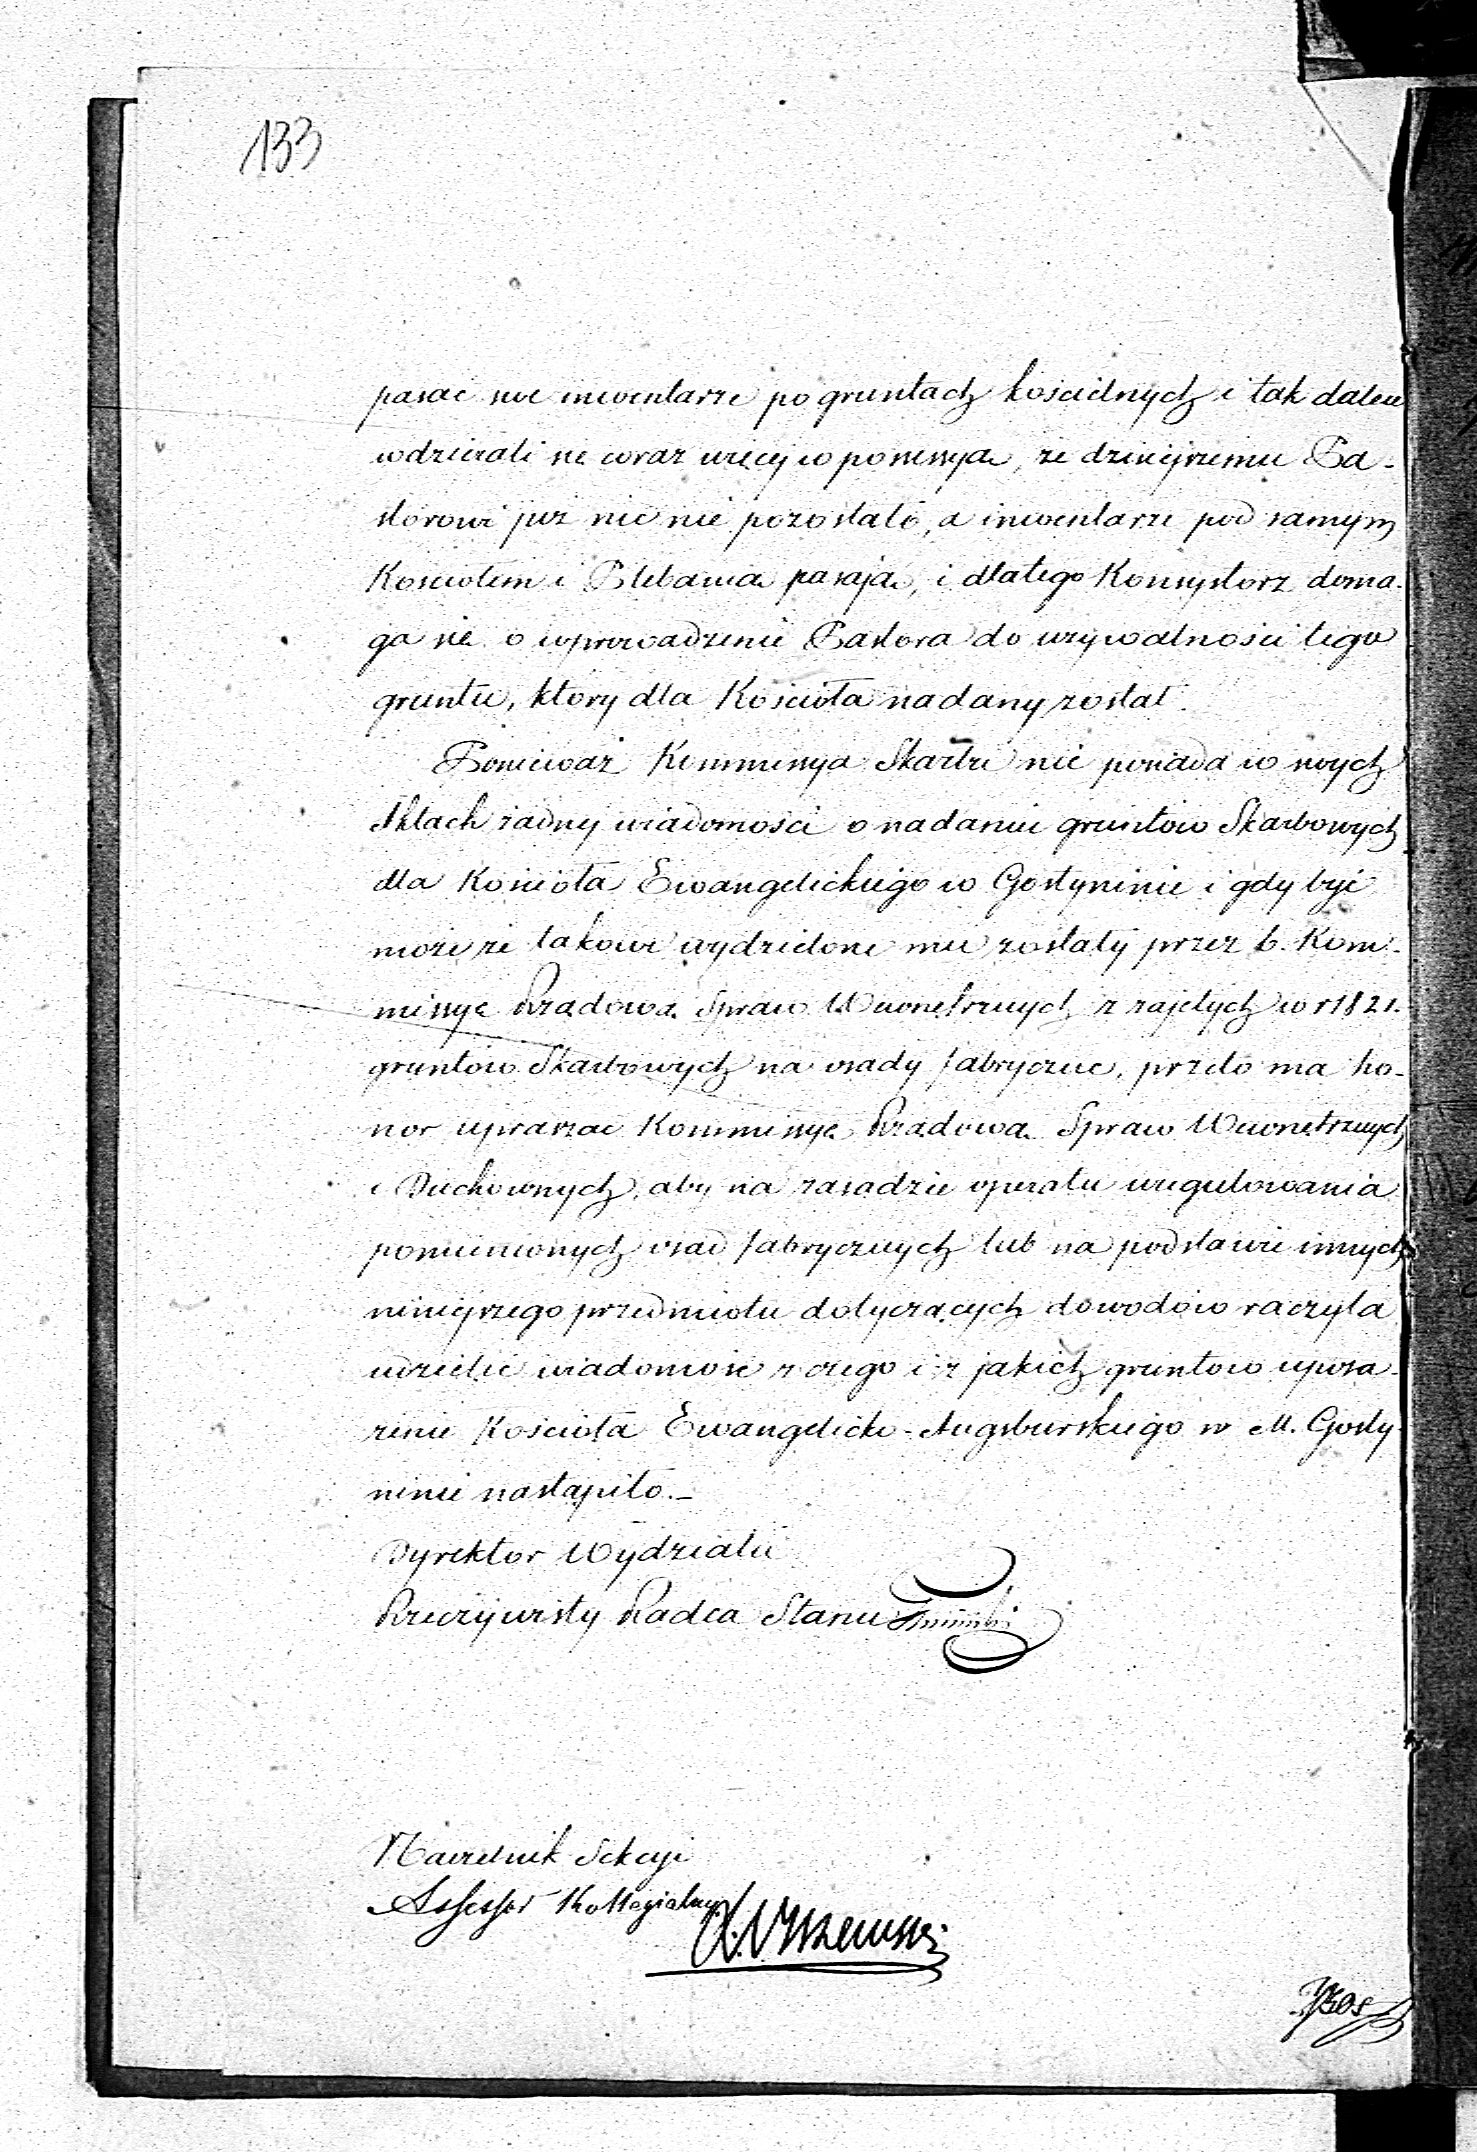 133
pasać swe inwentarze po gruntach kościelnych i tak dalece
wdzierali się coraz więcej w possessyą, że dzisiejszemu Pa-
storowi już nic nie pozostało, a inwentarze pod samym
Kościołem i Plebanią pasają, i dlatego Konsystorz doma-
ga się o wprowadzenie Pastora do używalności tego
gruntu, który dla Kościoła nadany został.
Ponieważ Kommissya Skarbu nie posiada w swych
Aktach żadnej wiadomości o nadaniu gruntów Skarbowych
dla Kościoła Ewangelickiego w Gostyninie i gdy być
może że takowe wydzielone mu zostały przez b. Kom-
missyę Rządową Spraw Wewnętrznych z zajętych w r 1821.
gruntów Skarbowych na osady fabryczne, przeto ma ho-
nor upraszać Kommissyę Rządową Spraw Wewnętrznych
i Duchownych, aby na zasadzie operatu uregulowania
pomienionych osad fabrycznych lub na podstawie innych
niniejszego przedmiotu dotyczących dowodów raczyła
udzielić wiadomość z czego i z jakich gruntów uposa-
żenie Kościoła Ewangelicko-Augsburskiego w M. Gosty-
ninie nastąpiło._
Dyrektor Wydziału
Rzeczywisty Radca Stanu
Naczelnik Sekcyi
Assessor Kollegialny